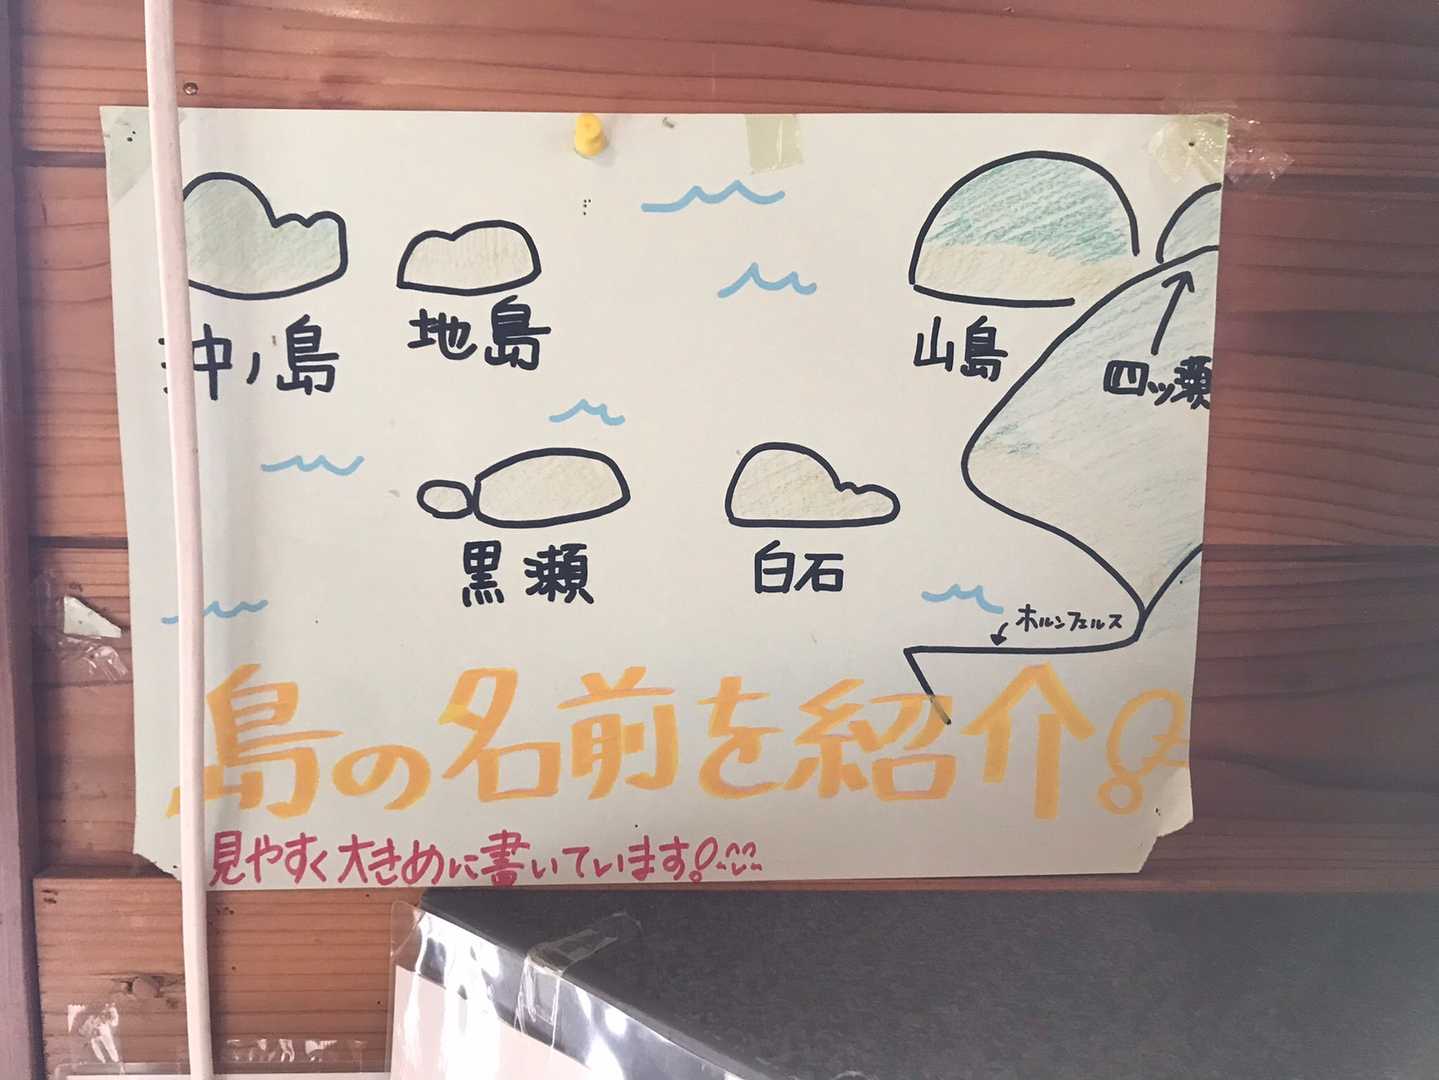 沖ノ島
地島
山島
四ツ瀬
黒瀬
白石
ホルンフェルス
島の名前を紹介!
見やすく大きめに書いています!